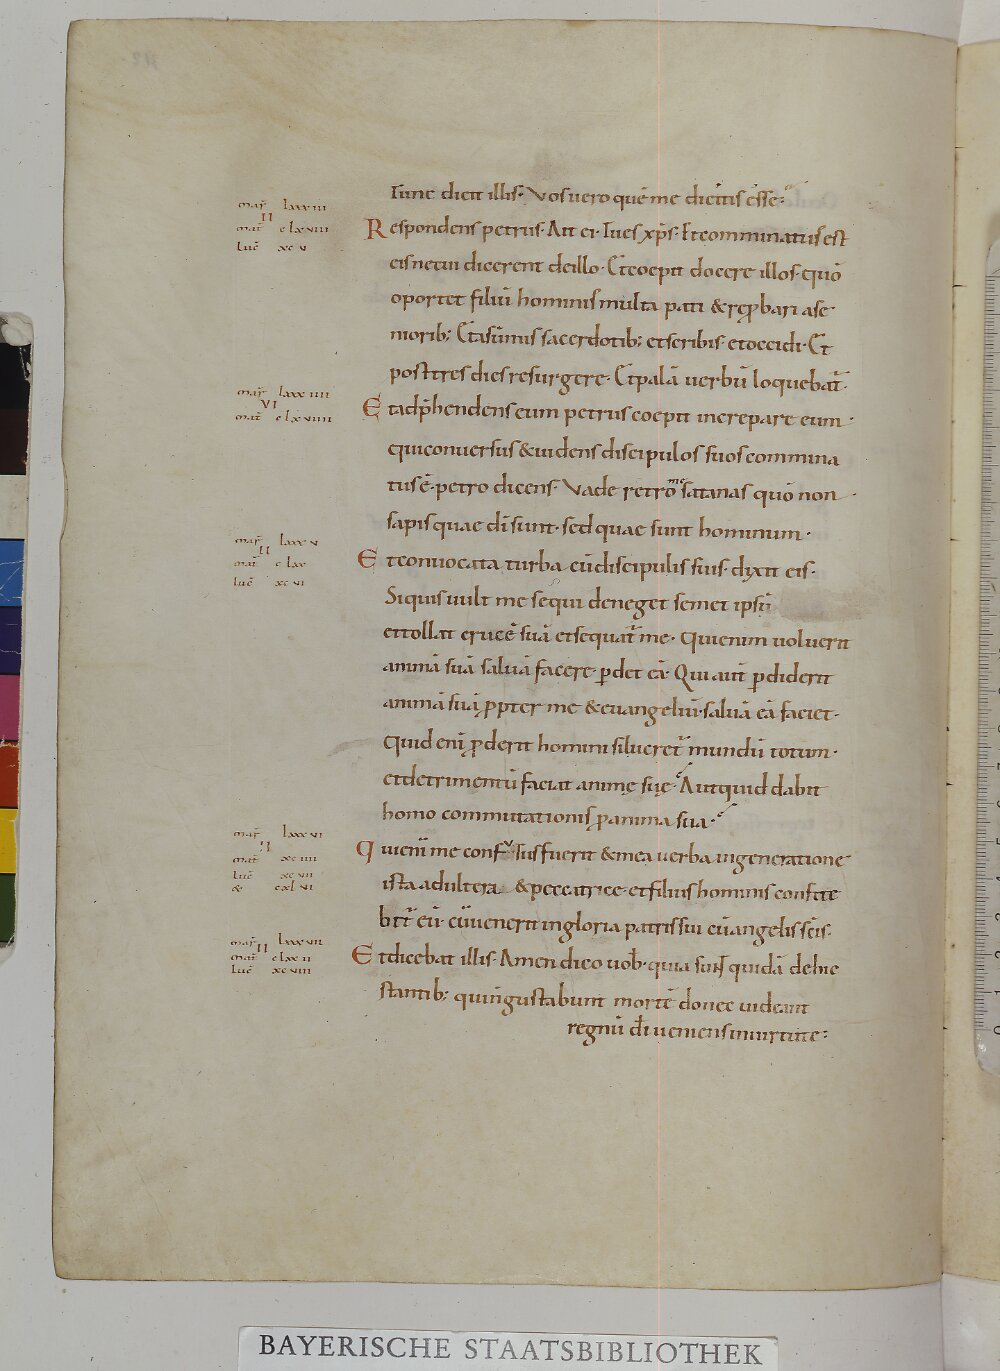 Tunc dicit illis· Vos uero quē me dicitis ēsse·
mar̄ lxxxiii
II
mat̄ clxviii
luc̄ xcv
Respondens petrus· Ait ei· Tu es xp̄s· Et comminatus est
eis ne cui dicerent de illo· Et coepit docere illos· quō
oportet filiū hominis multa pati & rep̄bari a se
niorib; Et a sūmis sacerdotib; et scribis· et occidi· Et
post tres dies resurgere· Et palā uerbū loquebat̄·
mar̄ lxxxiiii
VI
mat̄ clxviiii
Et adp̄hendens eum petrus coepit increpare eum·
qui conuersus & uidens discipulos suos commina
tus ē· petro dicens· Vade retro me satanas quō non
sapis quae dī sunt· sed quae sunt hominum·
mar̄ lxxxv
II
mat̄ clxx
luc̄ xcvi
Et conuocata turba cū discipulis suis· dixit eis·
Si quis uult me sequi deneget semet ipsū
et tollat crucē suā et sequat̄ me· Qui enim uoluerit
animā suā saluā facere· ꝑdet eā· Qui aut̄ ꝑdiderit
animā suā ꝓpter me & euangeliū· saluā eā faciet·
Quid enī ꝓderit homini si lucret̄ mundū totum·
et detrimentū faciat anime suę· Aut quid dabit
homo commutationis ꝓ anima sua·
mar̄ lxxxvi
II
mat̄ xciiii
luc̄ xcvii
& cxlvi
Qui enī me confusus fuerit & mea uerba in generatione
ista adultera & peccatrice· et filius hominis confite
bit̄ eū· cū uenerit in gloria patris sui cū angelis scīs·
mar̄ lxxxvii
II
mat̄ clxxii
luc̄ xcviii
Et dicebat illis· Amen dico uob̄· quia sunt quidā de hic
stantib; qui n̄ gustabunt mortē donec uideant
regnū dī ueniens in uirtute:
BAYERISCHE STAATSBIBLIOTHEK